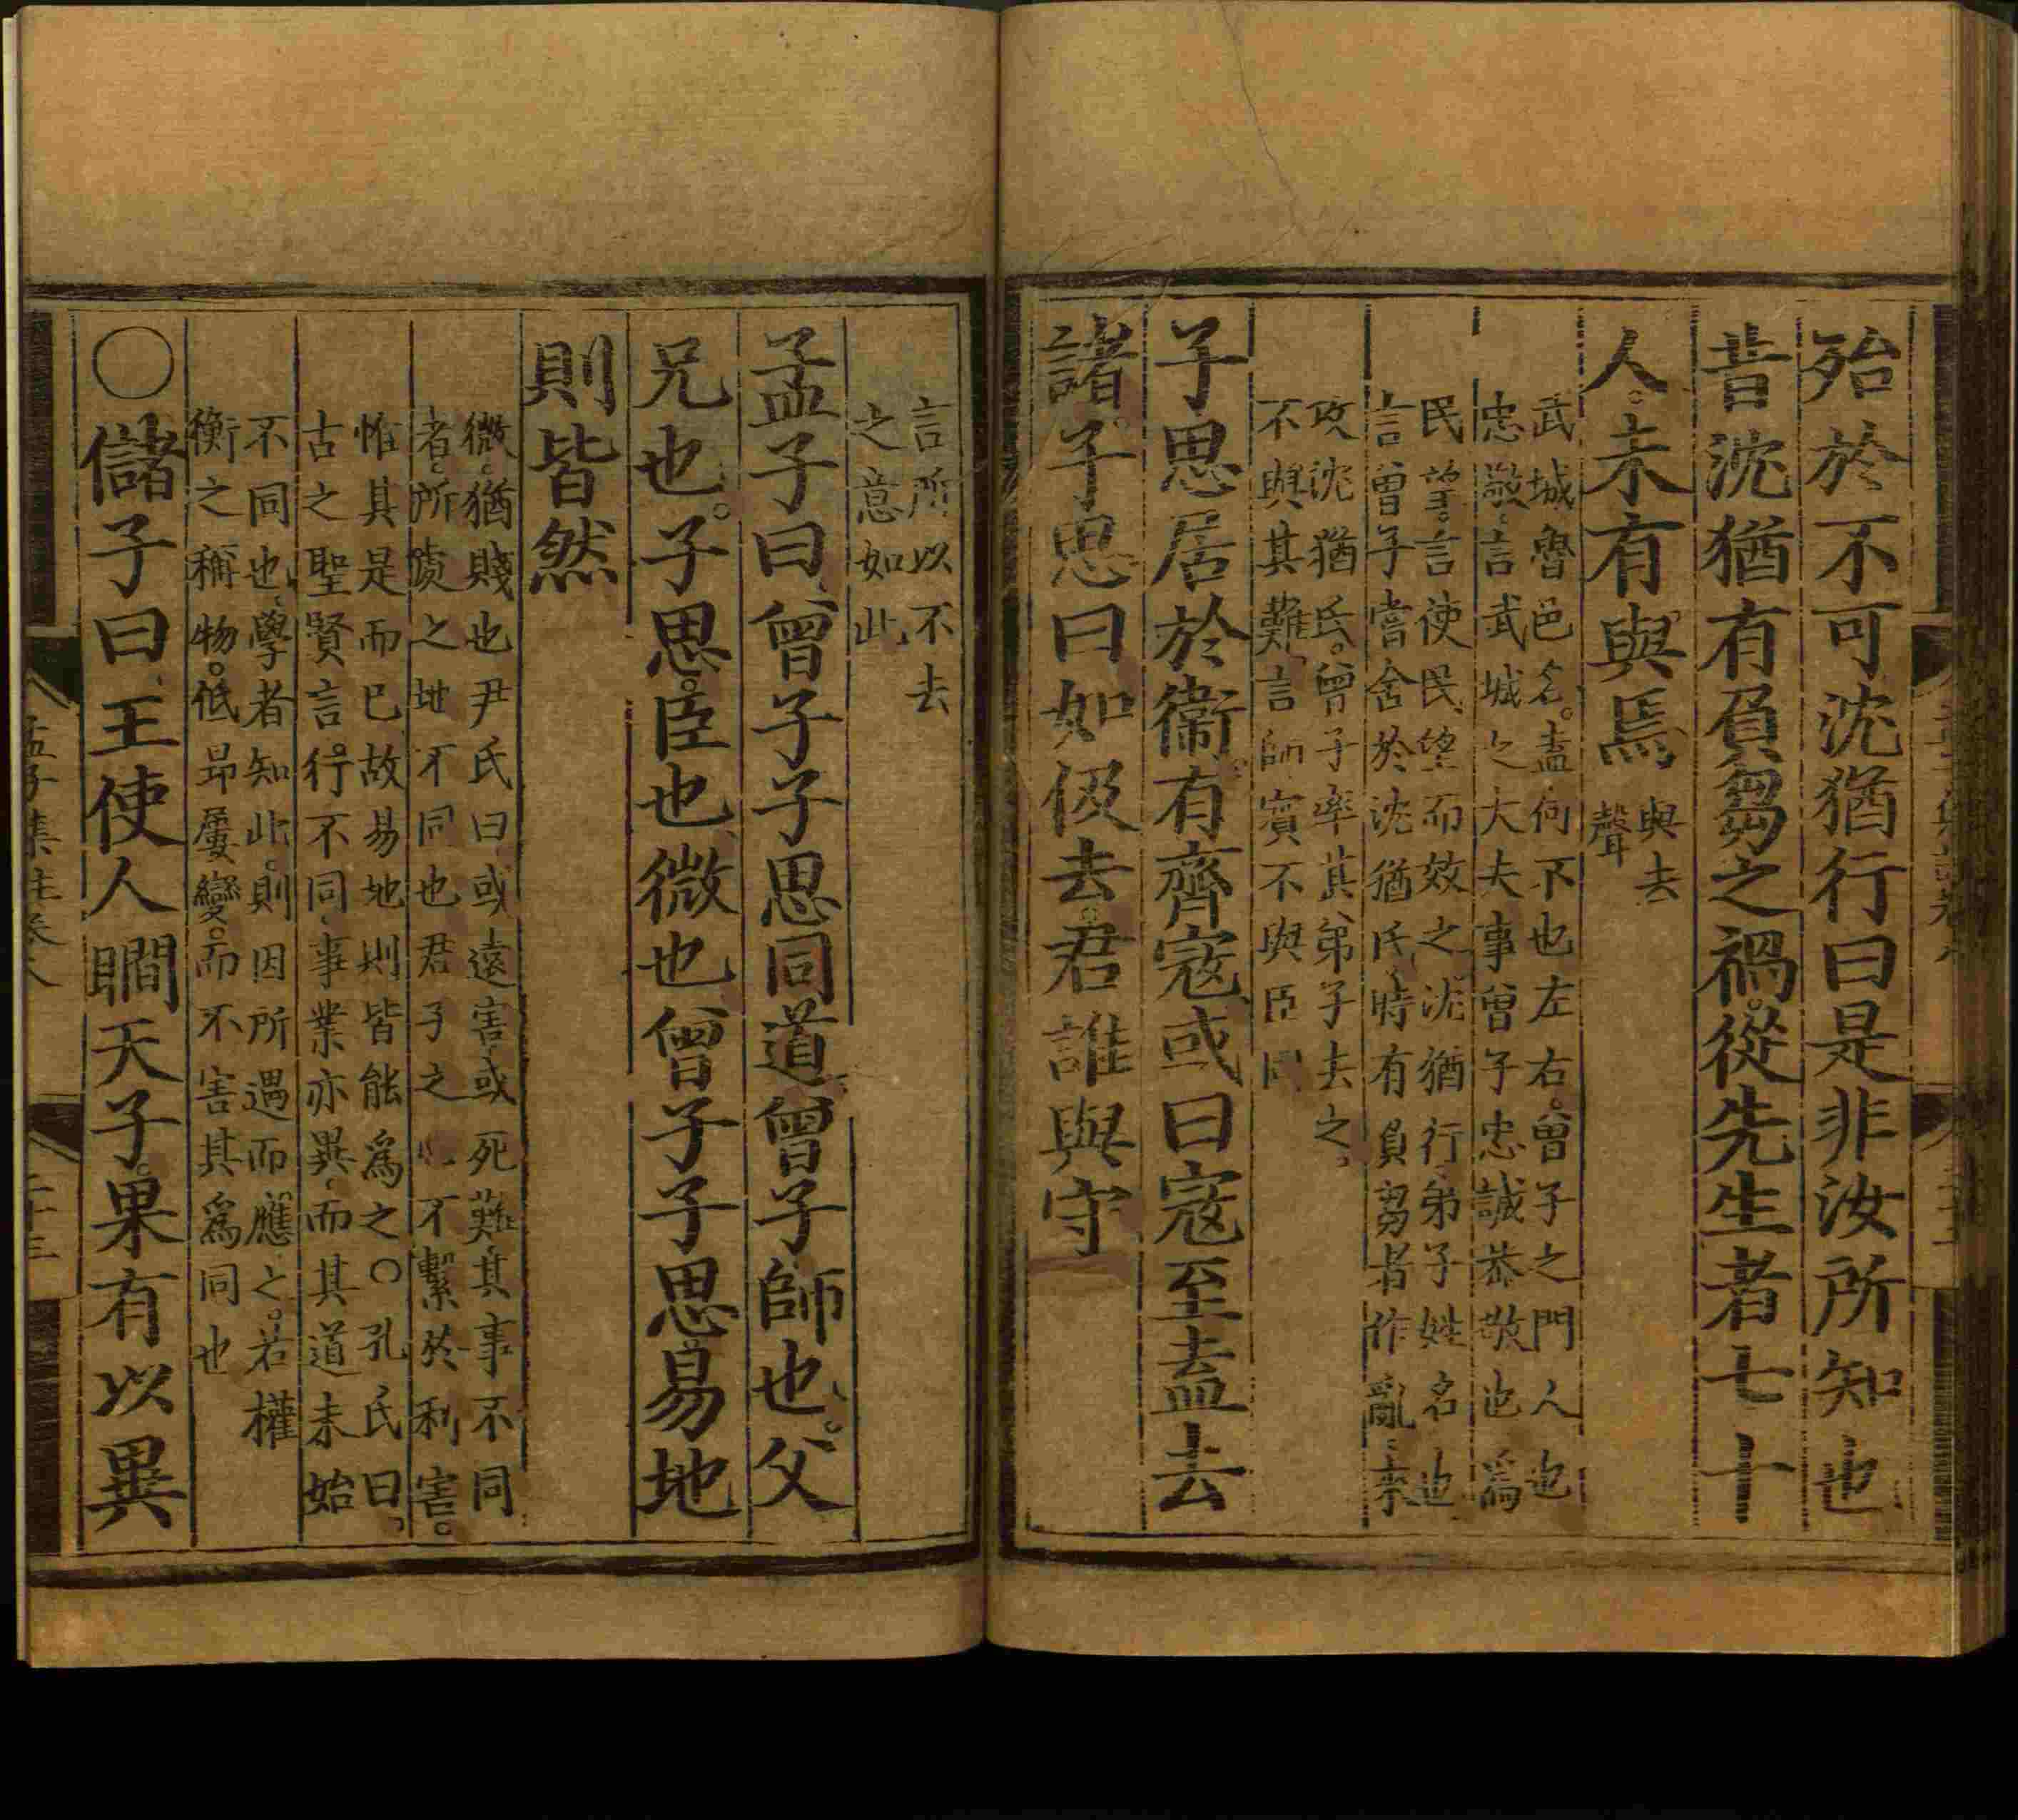 殆於不可沈猶行曰是非汝所知也
昔沈猶有負芻之禍。從先生者七十
人。未有與焉
與去
聲
武城魯邑名。盍何不也左右。曾子之門人也
忠敬、言武城之大夫事曾子忠誠恭敬也爲
民望。言使民望而效之、沈猶行、弟子姓名也
言曾子嘗舍於沈猶氏、時有負芻者作亂、來
攻沈猶氏。曾子率其弟子去之。
不與其難、言師賓不與臣同
子思居於衞、有齊寇、或曰寇至盍去
諸。子思曰如伋去。君誰與守
言所以不去
之意如此、
孟子曰、曾子子思同道、曾子師也、父
兄也。子思。臣也、微也、曾子子思。易地
則皆然
微。猶賤也尹氏曰或遠害、或死難、其事不同
者。所處之地不同也君子之心不繫於利害。
惟其是而已故易地則皆能爲之〇孔氏曰、
古之聖賢言。行不同、事業亦異、而其道未始
不同也、學者知此。則因所遇而應之。若權
衡之稱物。低昂屢變。而不害其爲同也
〇儲子曰、王使人瞷天子。果有以異
孟子集註卷八
二十三